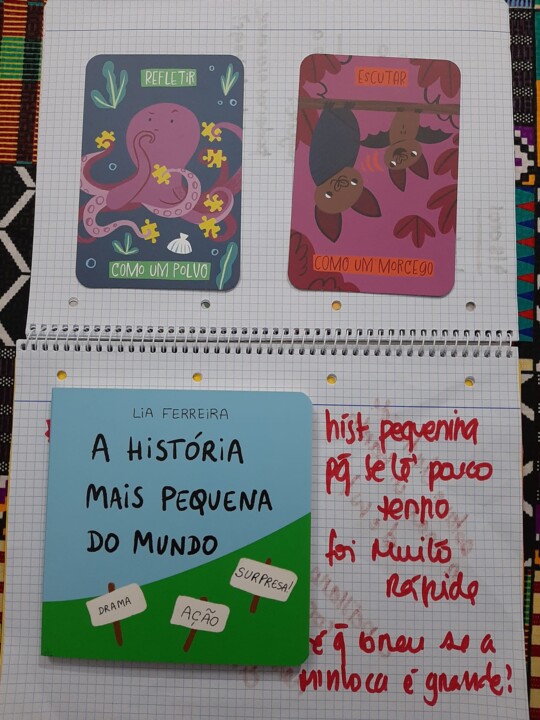 REFLETIR
COMO UM POLVO
ESCUTAR
COMO UM MORCEGO
LIA FERREIRA
A HISTÓRIA
MAIS PEQUENA
DO MUNDO
DRAMA
AÇÃO
SURPRESA!
hist pequenina
pq se lê pouco
tempo
foi muito
rápida
é q se a
minhoca é grande?